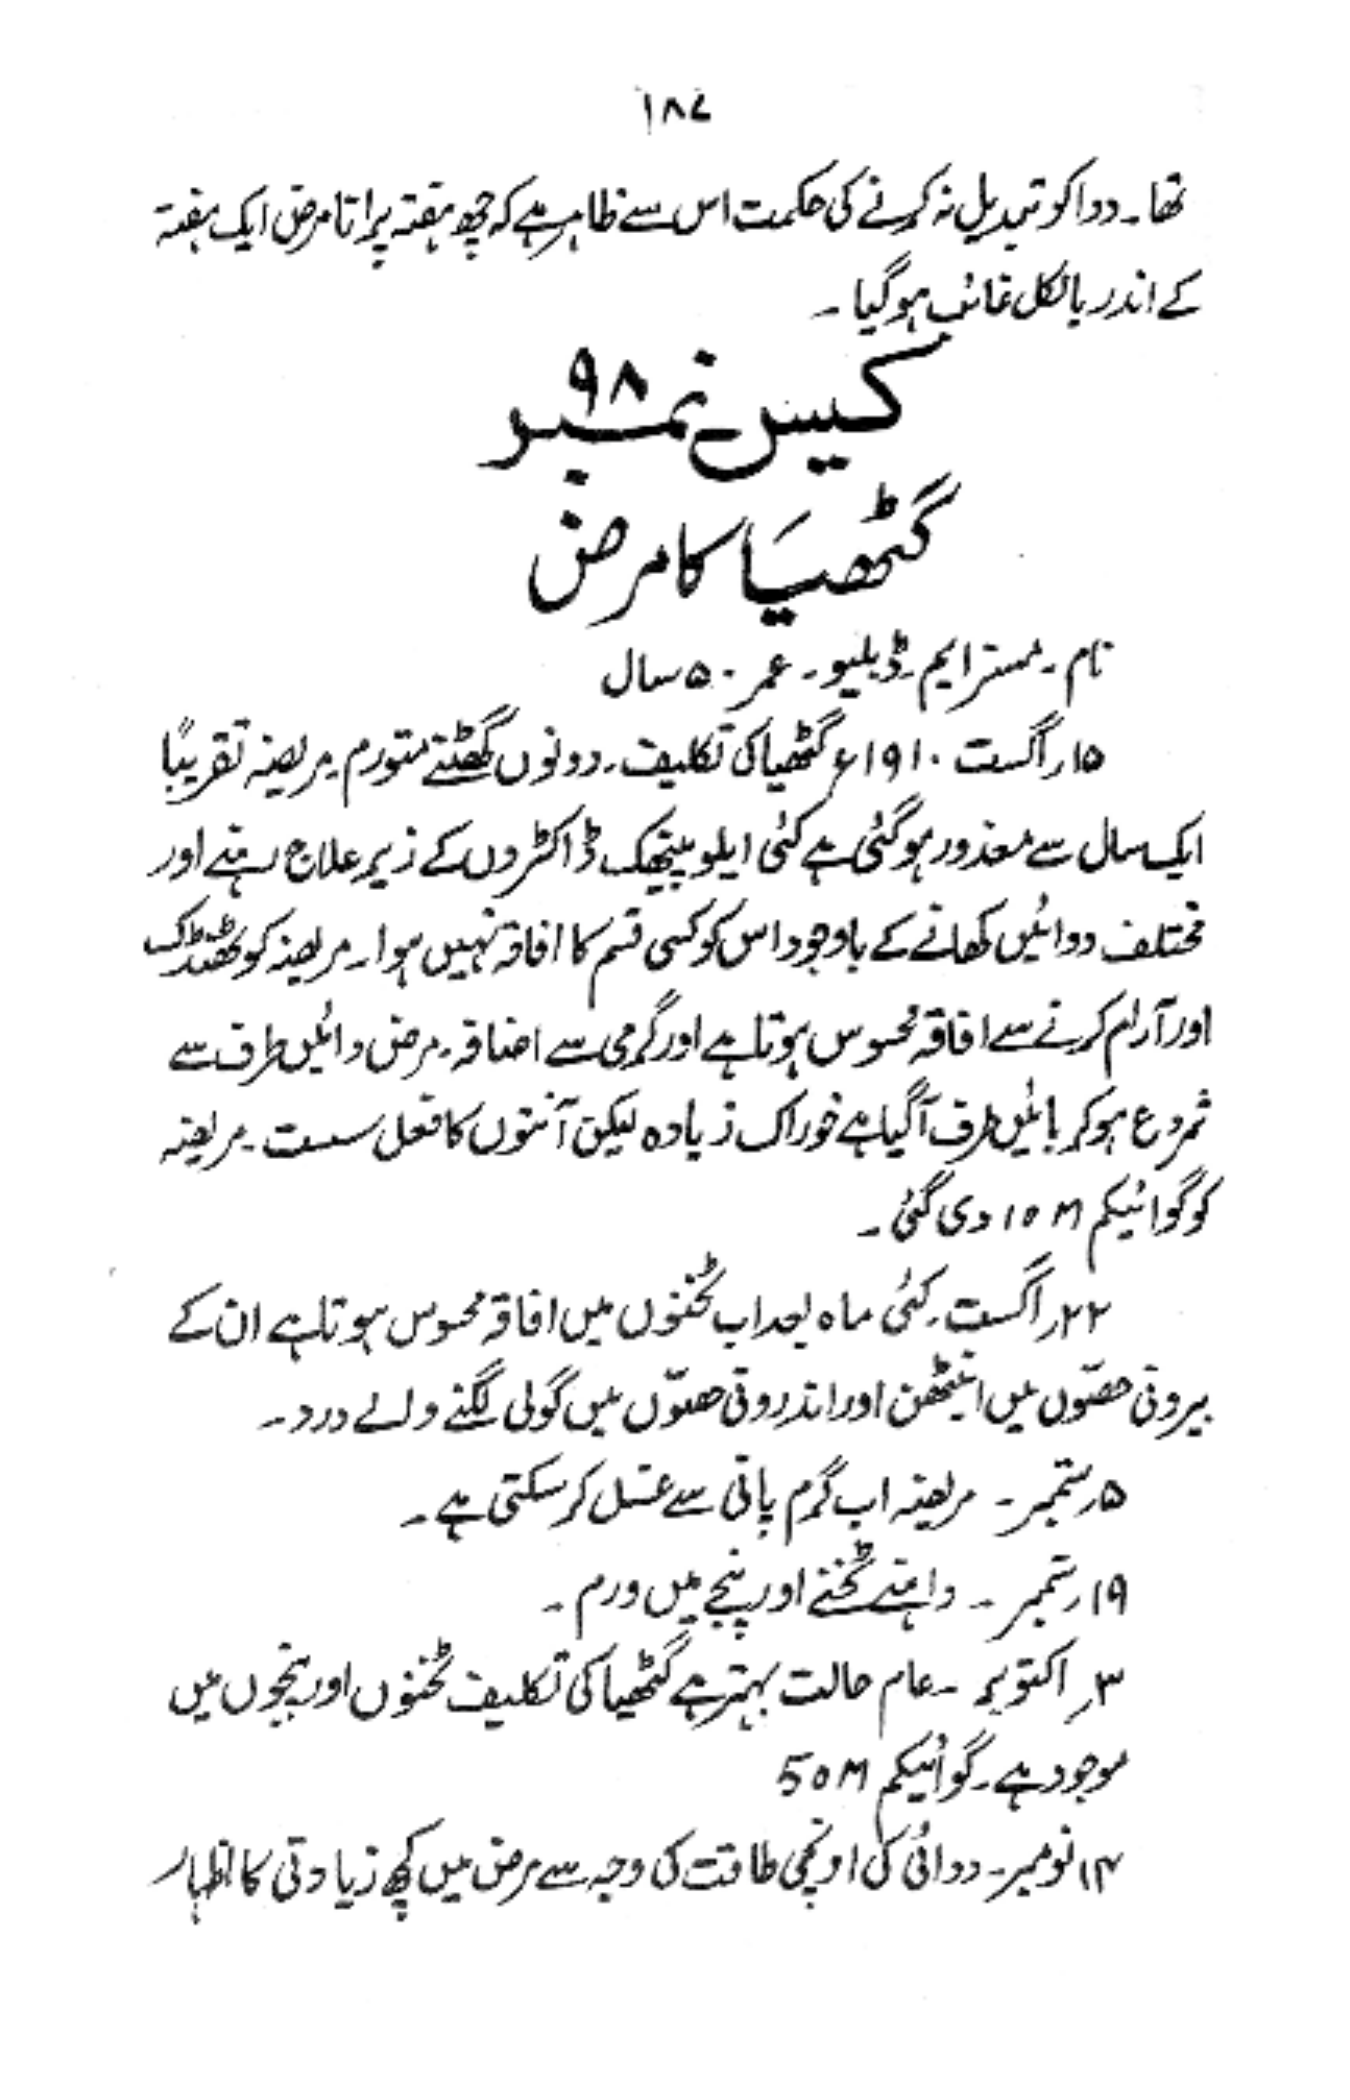 ۱۸۷
تھا۔ دوا کو تبدیل نہ کرنے کی حکمت اس سے ظاہر ہے کہ چھ ہفتہ پرانا مرض ایک ہفتہ
کے اندر بالکل غائب ہوگیا۔
کیس نمبر ۹۸
گٹھیا کا مرض
نام۔ مسز ایم۔ ڈبلیو۔ عمر ۵۰ سال
۱۵؍اگست ۱۹۱۰ء گٹھیا کی تکلیف۔ دونوں گھٹنے متورم۔ مریضہ تقریباً
ایک سال سے معذور ہوگئی ہے کئی ایلوپیتھک ڈاکٹروں کے زیر علاج رہنے اور
مختلف دوائیں کھانے کے باوجود اس کو کسی قسم کا افاقہ نہیں ہوا۔ مریضہ کو ٹھنڈک
اور آرام کرنے سے افاقہ محسوس ہوتا ہے اور گرمی سے اضافہ۔ مرض دائیں طرف سے
شروع ہو کر بائیں طرف آگیا ہے خوراک زیادہ لیکن آنتوں کا فعل سست۔ مریضہ
کو گوائیکم ۱۰M دی گئی۔
۲۲؍اگست۔ کئی ماہ بعد اب ٹخنوں میں افاقہ محسوس ہوتا ہے ان کے
بیرونی حصّوں میں اینٹھن اور اندرونی حصّوں میں گولی لگنے والے درد۔
۵؍ستمبر۔ مریضہ اب گرم پانی سے غسل کر سکتی ہے۔
۱۹؍ستمبر۔ داہنے ٹخنے اور پنجے میں ورم۔
۳؍اکتوبر۔ عام حالت بہتر ہے گٹھیا کی تکلیف ٹخنوں اور پنجوں میں
موجود ہے۔ گوائیکم 50M
۱۴؍نومبر۔ دوائی کی اونچی طاقت کی وجہ سے مرض میں کچھ زیادتی کا اظہار